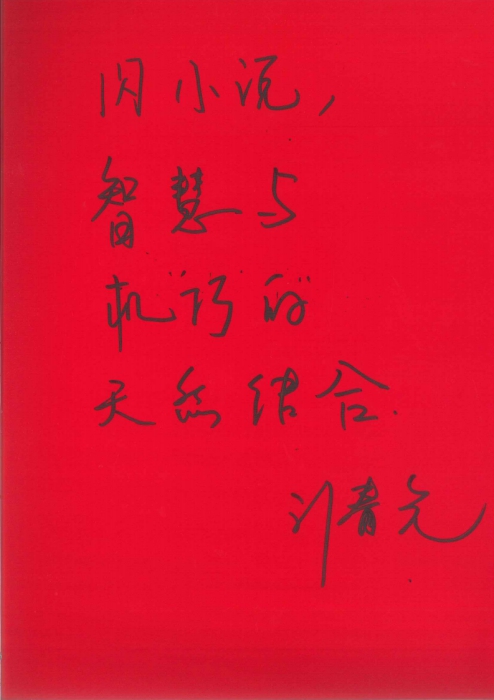 闪小说，
智慧与
机“巧”的
天然结合.